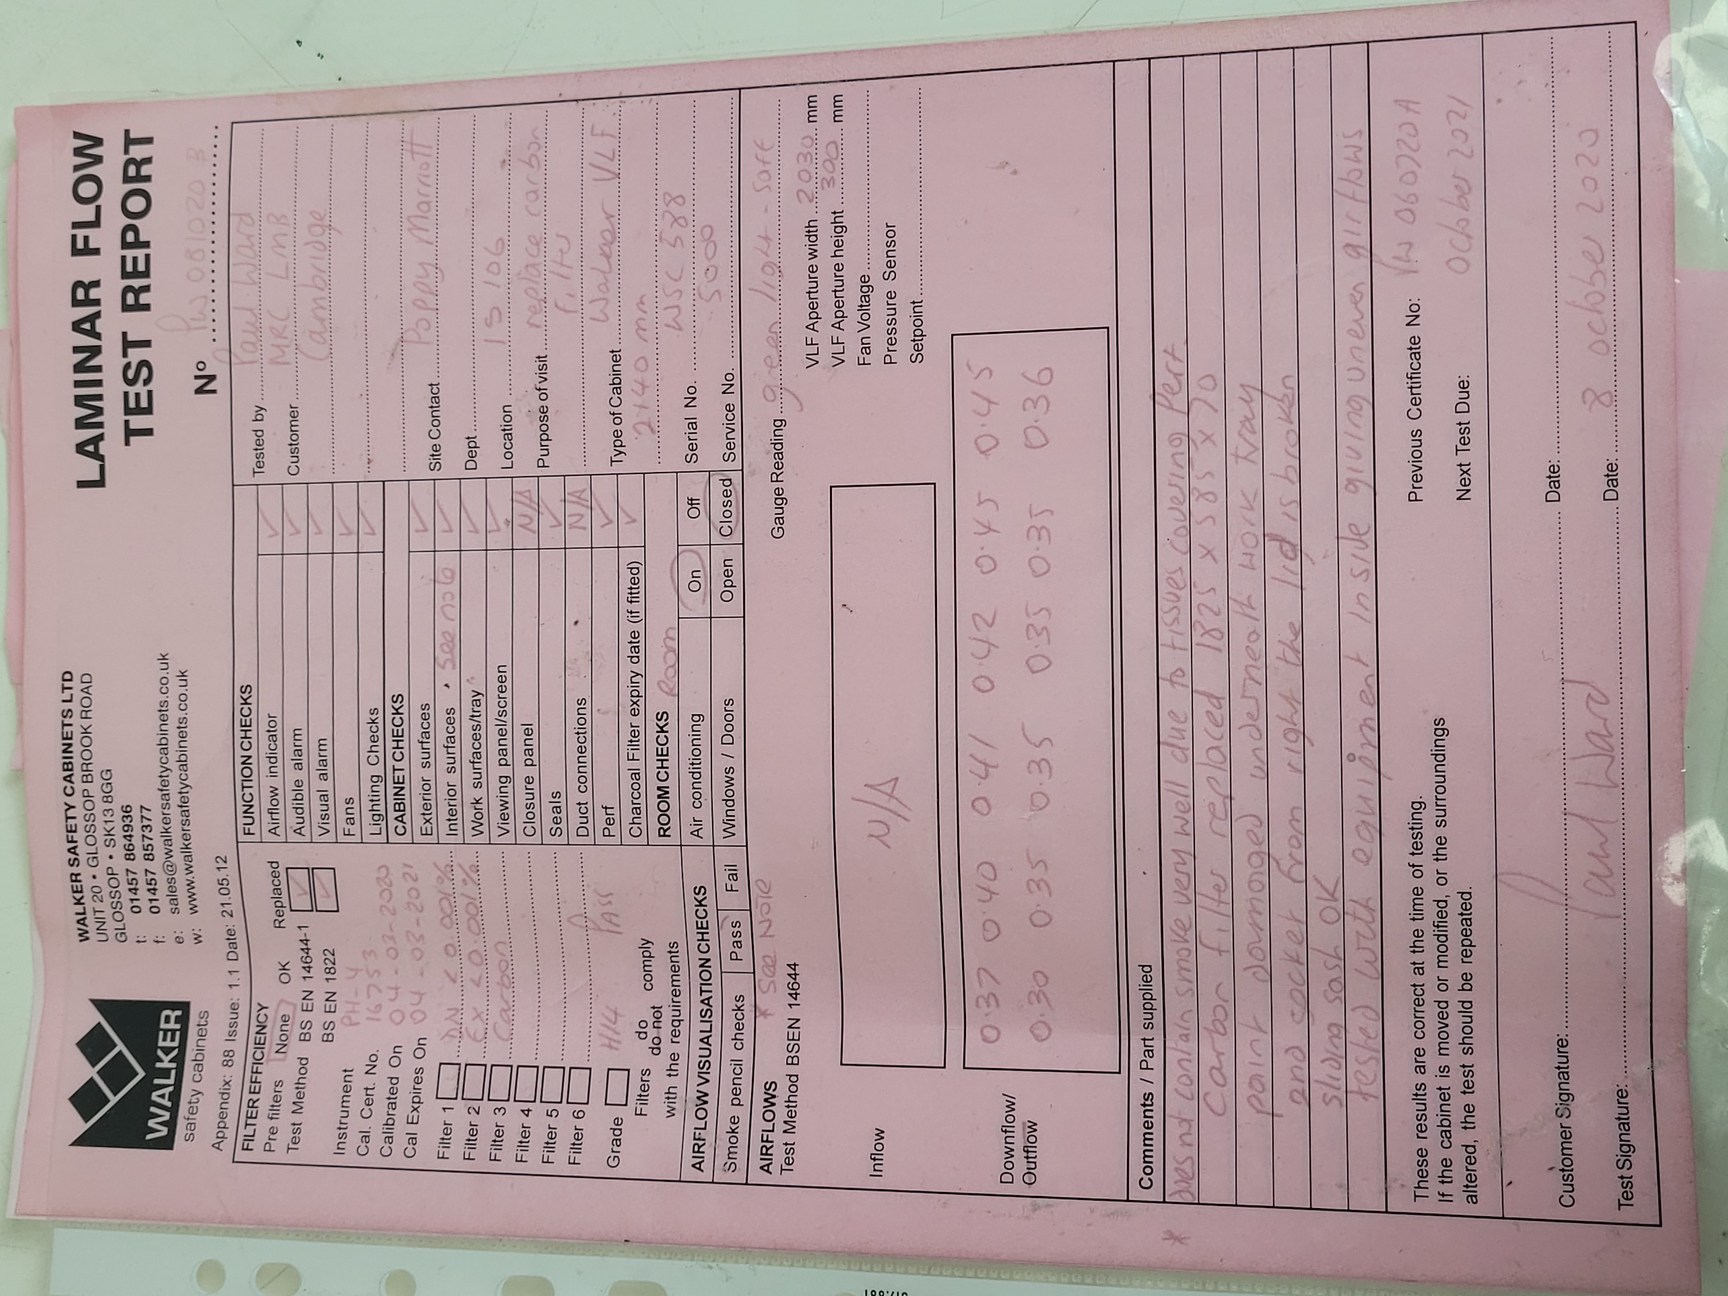 WALKER
safety cabinets
WALKER SAFETY CABINETS LTD
UNIT 20 • GLOSSOP BROOK ROAD
GLOSSOP • SK13 8GG
t: 01457 864936
f: 01457 857377
e: sales@walkersafetycabinets.co.uk
w: www.walkersafetycabinets.co.uk
LAMINAR FLOW
TEST REPORT
Appendix: 88 Issue: 1.1 Date: 21.05.12
Nº PW 081020 B
FILTER EFFICIENCY
Pre filters None OK Replaced
Test Method BS EN 14644-1 ✓
BS EN 1822 ✓
Instrument PH-4
Cal. Cert. No. 16753
Calibrated On 04-03-2020
Cal Expires On 04-03-2021
Filter 1 DN <0.001%
Filter 2 EX <0.001%
Filter 3 Carbon
Filter 4
Filter 5
Filter 6
Grade H14 Pass
Filters do comply
do not
with the requirements
FUNCTION CHECKS
Airflow indicator ✓
Audible alarm ✓
Visual alarm ✓
Fans ✓
Lighting Checks ✓
CABINET CHECKS
Exterior surfaces ✓
Interior surfaces • See note ✓
Work surfaces/tray ✓
Viewing panel/screen ✓
Closure panel N/A
Seals ✓
Duct connections N/A
Perf ✓
Charcoal Filter expiry date (if fitted) ✓
ROOM CHECKS Room
Air conditioning On Off
Windows / Doors Open Closed
Tested by Paul Ward
Customer MRC LMB
Cambridge
Site Contact Poppy Marriott
Dept
Location 1S 106
Purpose of visit replace carbon
filter
Type of Cabinet Walker VLF
2140 mm
Serial No. WSC 588
Service No. 5000
AIRFLOW VISUALISATION CHECKS
Smoke pencil checks Pass Fail
AIRFLOWS * See Note
Test Method BSEN 14644
Gauge Reading green light - safe
Inflow N/A
VLF Aperture width 2030 mm
VLF Aperture height 300 mm
Fan Voltage
Pressure Sensor
Setpoint
Downflow/
Outflow
0.37 0.40 0.41 0.42 0.45 0.45
0.30 0.35 0.35 0.35 0.35 0.36
Comments / Part supplied
* does not contain smoke very well due to tissues covering Perf.
Carbon filter replaced 1825 x 585 x 70
paint damaged underneath work tray
and socket from right the lid is broken
sliding sash OK
tested with equipment inside giving uneven airflows
These results are correct at the time of testing.
If the cabinet is moved or modified, or the surroundings
altered, the test should be repeated.
Previous Certificate No: PW 060720A
Next Test Due: October 2021
Customer Signature: Date:
Test Signature: Paul Ward Date: 8 October 2020